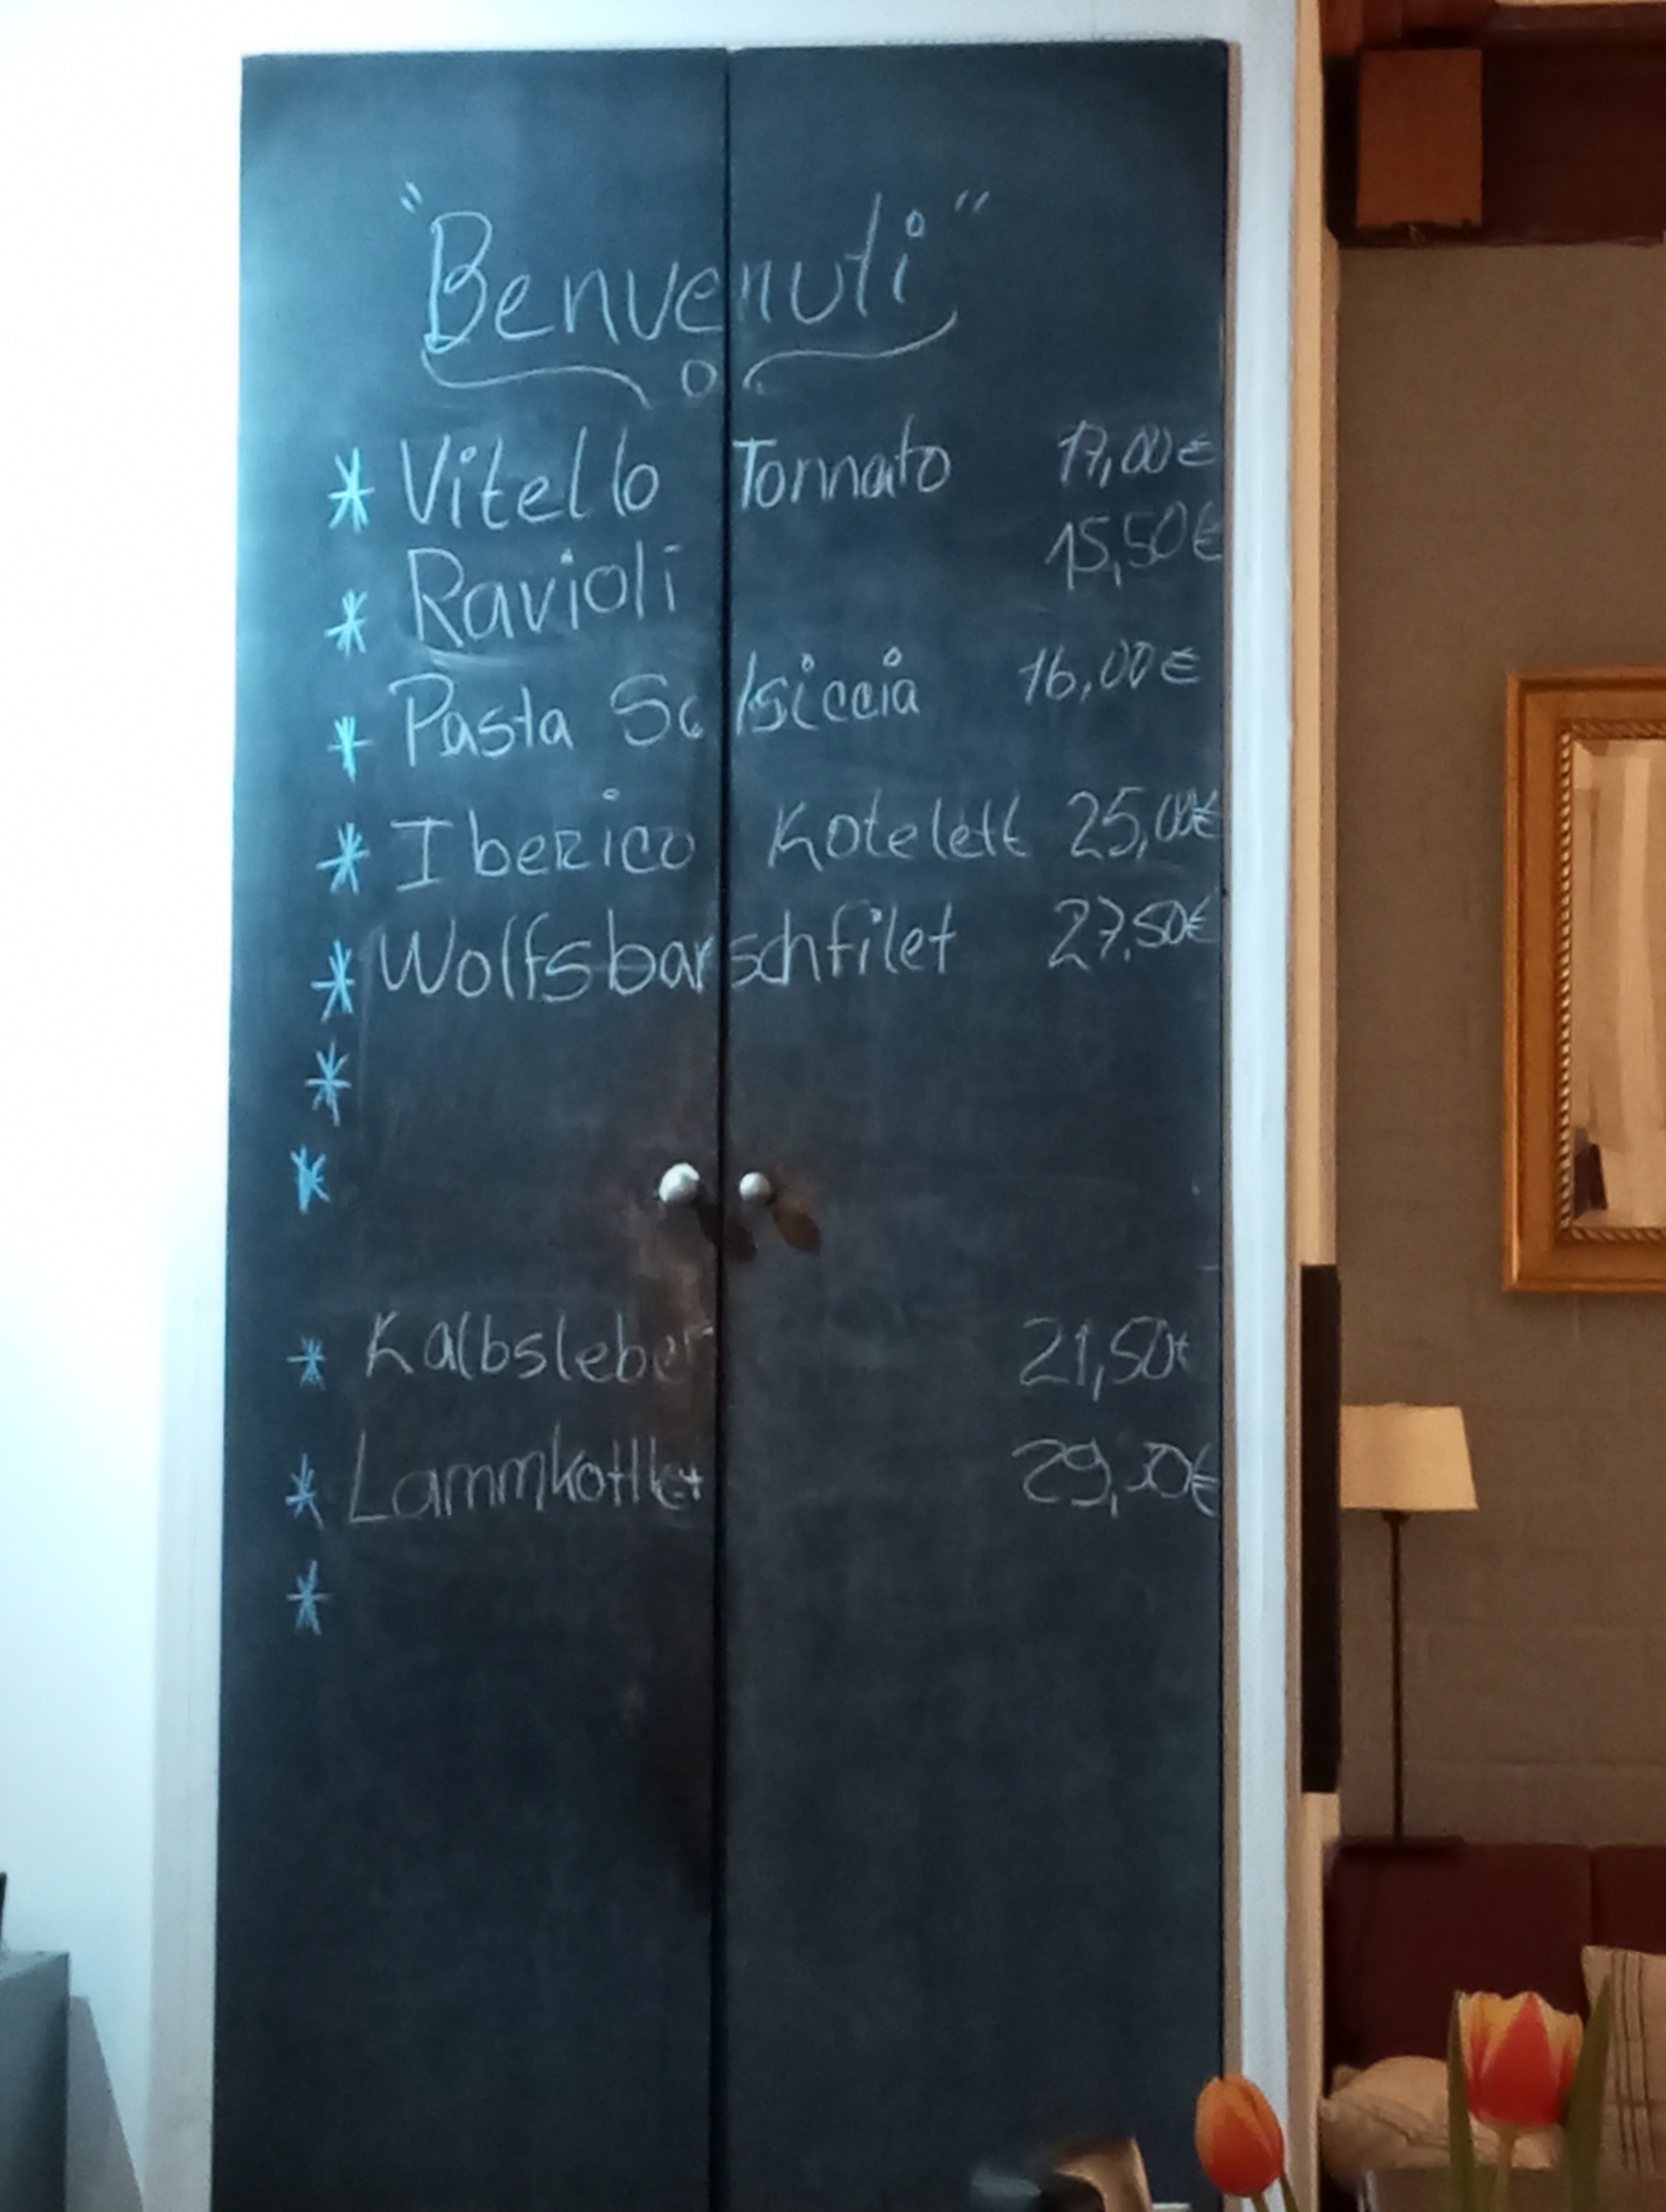 "Benvenuti"
* Vitello Tonnato 17,00€
* Ravioli 15,50€
* Pasta Salsiccia 16,00€
* Iberico Kotelett 25,00€
* Wolfsbarschfilet 27,50€
*
*
* Kalbsleber 21,50€
* €
*